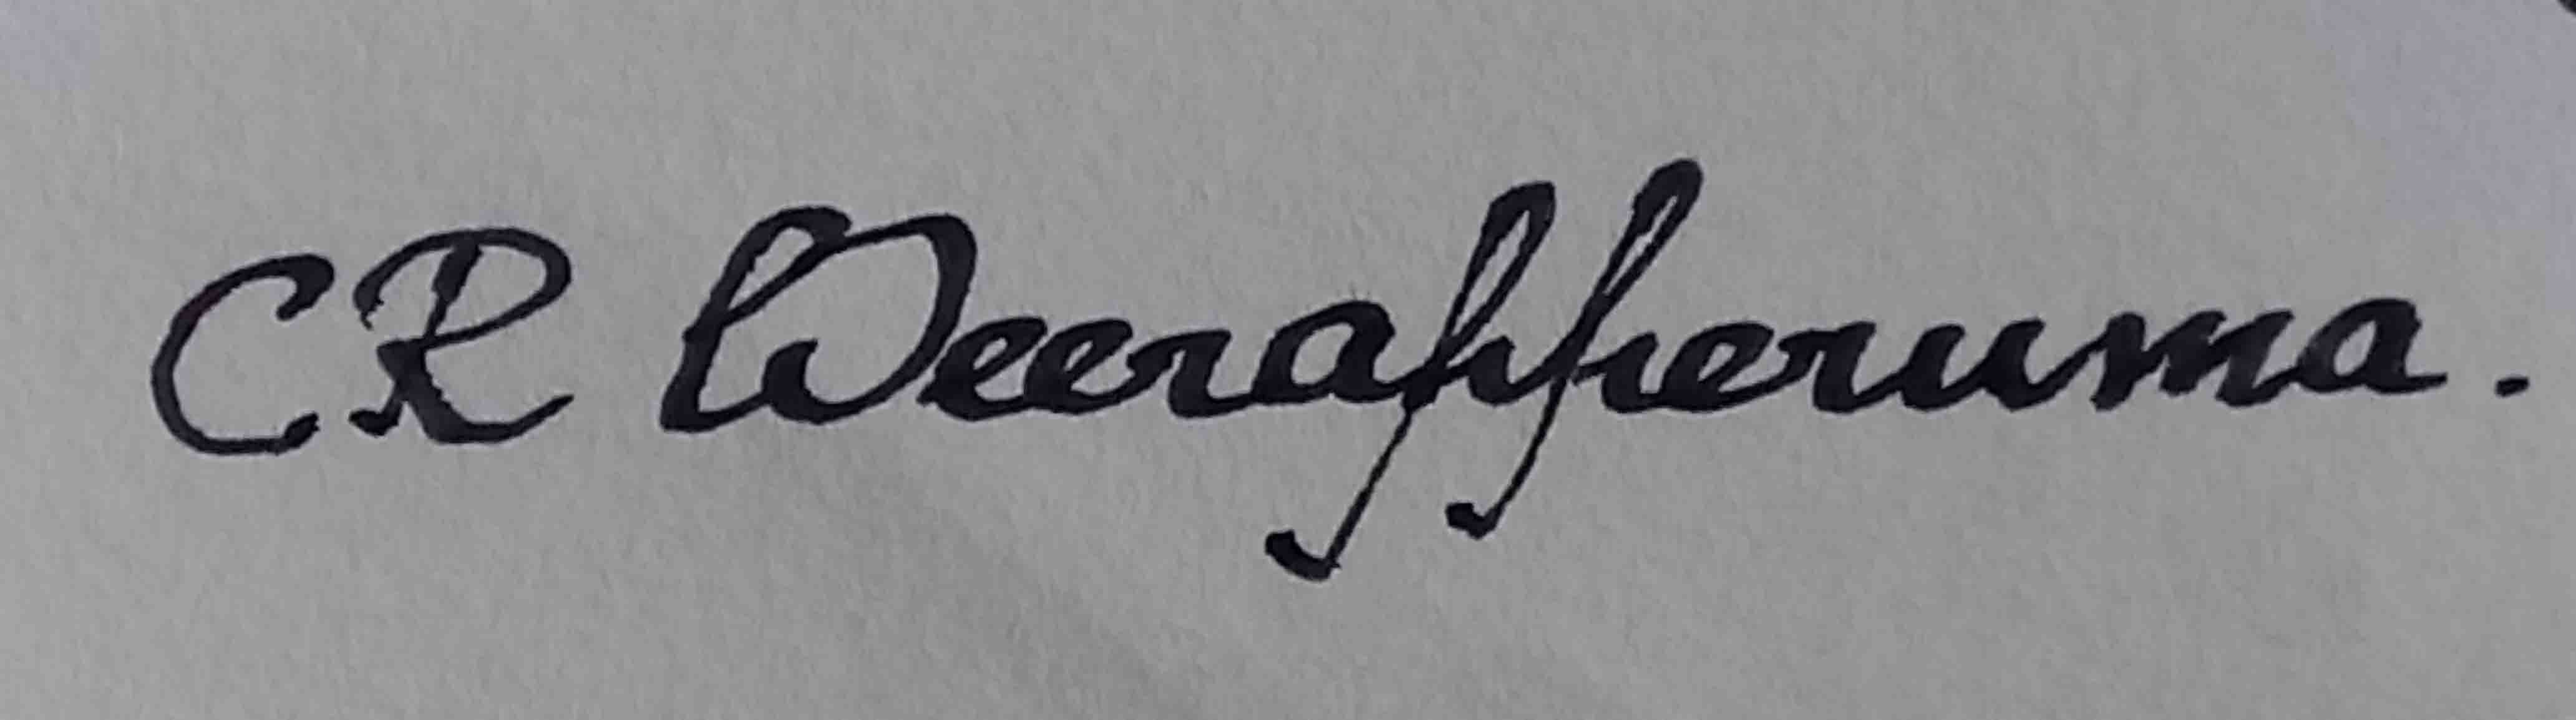 CR Weerapperuma.